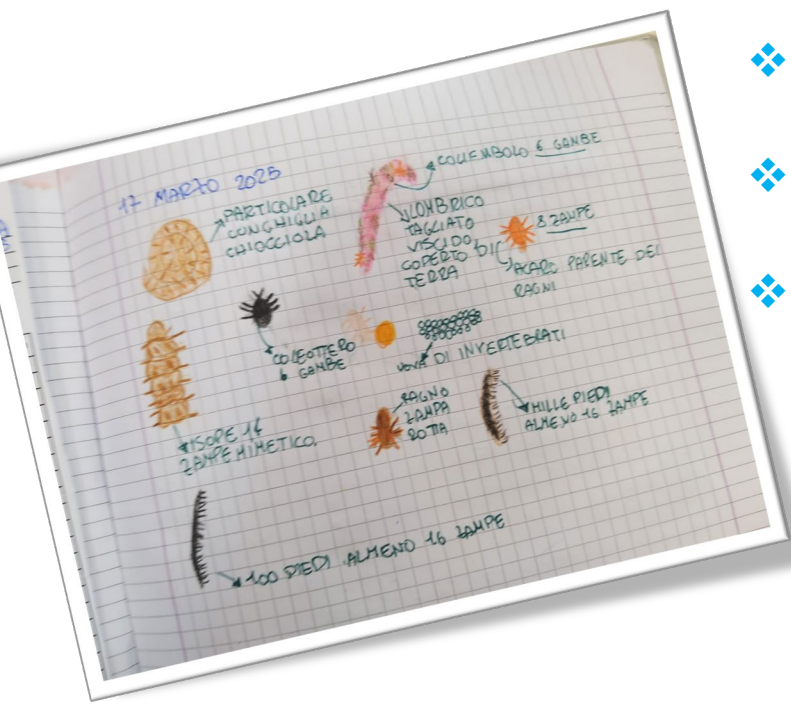 17 MARZO 2025
PARTICOLARE
CONGHIGLIA
CHIOCCIOLA
COLLEMBOLO 6 GAMBE
LOMBRICO
TAGLIATO
VISCIDO
COPERTO DI
TERRA
8 ZAMPE
ACARO PARENTE DEI
RAGNI
COLEOTTERO
6 GAMBE
UOVA DI INVERTEBRATI
ISOPE 14
ZAMPE MIMETICO
RAGNO
ZAMPA
ROTTA
MILLE PIEDI
ALMENO 16 ZAMPE
100 PIEDI ALMENO 16 ZAMPE